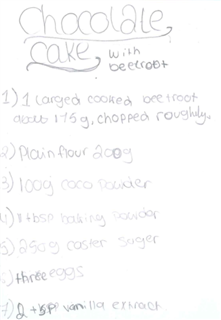 Chocolate
Cake with
beetroot
1) 1 larged cooked beetroot
about 175g, chopped roughly.
2) Plain flour 200g
3) 100g coco powder
4) 1 tbsp baking powder
5) 250g caster suger
6) three eggs
7) 2 tsp vanilla extract